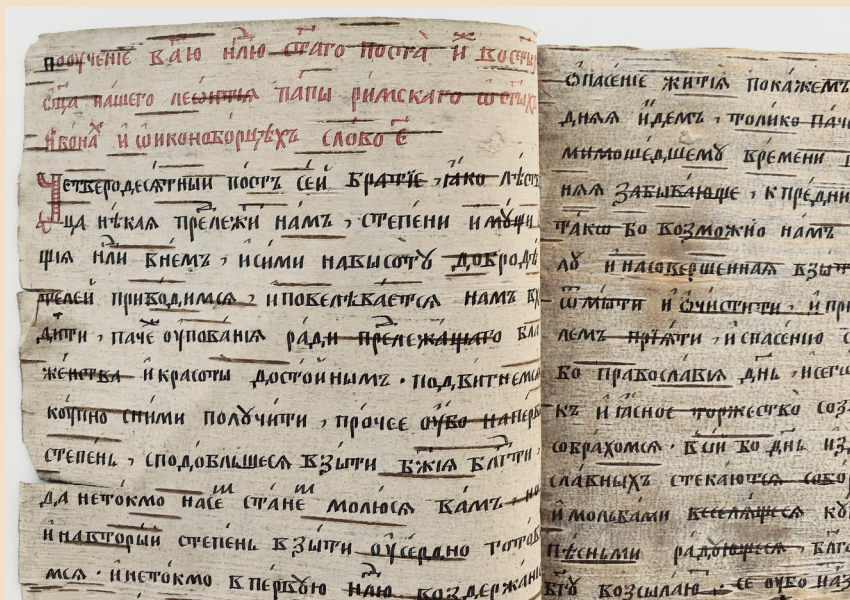 поѹчение в҃ ю нлю ст҃аго поста и҆ восеты
сщ҃а нашего леѡнтїа папы римскаго ѿстых
и҆вона и҆ ѡиконоборцѣхъ слово є҃
Четвероде сѧтныи постъ сеи братїе , ꙗко лѣст
вица нѣкаѧ прележи намъ , степени имꙋщи
щїѧ нли внемъ , исими нависотꙋ добродѣ
телей приводимсѧ , и повелѣваетсѧ намъ вх
дити , паче оупованїѧ ради прележащаго бла
женства и҆ красоты достойнымъ · подвигнемсѧ
кꙋпно сними полꙋчити , прочее оубо наперв
степень , сподобльшесѧ взыти бж҃їѧ блг҃ти
да нетокмо насе стане молюсѧ вамъ но
и҆ навторыи степень взыти оусердно готов
мсѧ · и҆ нетокмо впервꙋю нлю воздержани
ѡпасенїе житїѧ покажемъ
днѧѧ идемъ , толико паче
мимошедшемꙋ времени
нѧѧ забывающе , к предни
такѡ бо возможно намъ
лꙋ и насовершеннаѧ взыт
ѿмыти и ѡчистити , и҆ при
лемъ прїѧти , и҆ спасению
во православиѧ днь , и сего
къ и҆ ꙗсное торжество соз
собрахомсѧ · вси бо днь из
славныхъ стекаютсѧ собо
и҆ мольбами веселѧщесѧ
пѣсньми радꙋющесѧ , блго
бг҃ꙋ возсылаю · се оубо наз